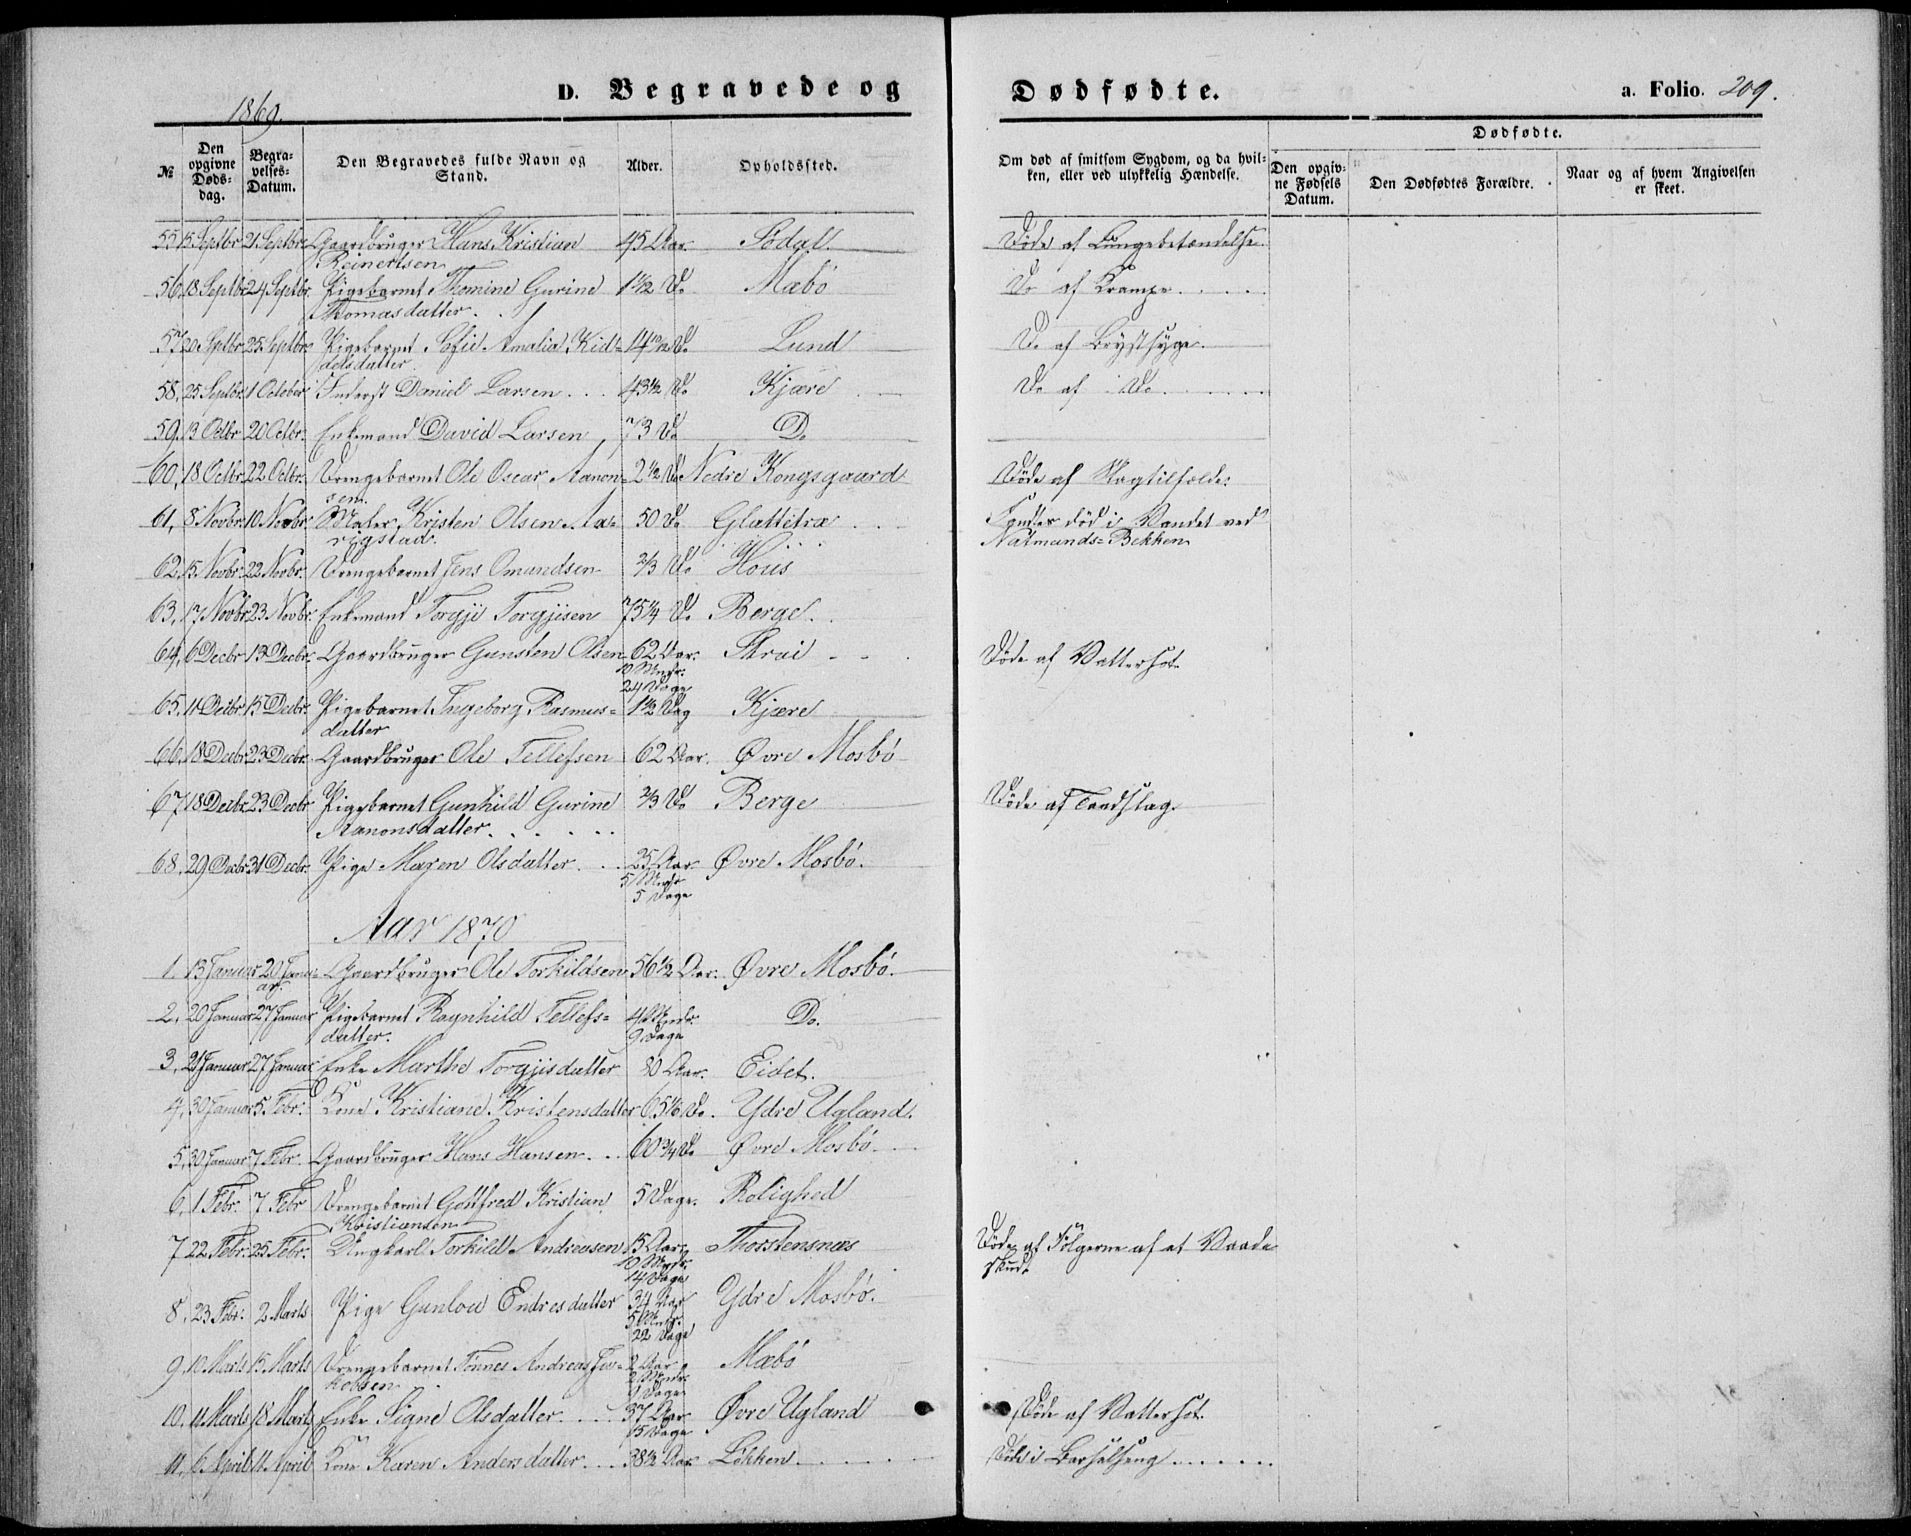 D. Begravede og Dødfødte. a. Folio. 209.
1869.
№ Den opgivne Døds-dag. Begra-velses-Datum. Den Begravedes fulde Navn og Stand. Alder. Opholdssted. Om død af smitsom Sygdom, og da hvil-ken, eller ved ulykkelig Hændelse. Dødfødte. Den opgiv-ne Fødsels Datum. Den Dødfødtes Forældre. Naar og af hvem Angivelsen er skeet.
55 15 Septbr 21 Septbr Gaardbruger Hans Kristian 45 Aar. Södal. Döde af Lungebetændelse.
Reinertsen
56. 18 Septbr 24 Septbr. Pigebarnet Thomine Gurine 1 1/2 Do Mæbö Do af Krampe.....
Thomasdatter..
57 20 Septbr 25 Septbr. Pigebarnet Sofie Amalia Kid= Do Lund Do af Brystsyge.
delsdatter.
58. 25 Septbr. 1 October Inderst Daniel Larsen... 43 1/2 Do Kjære Do af Do
59. 13 Octbr 20 Octbr. Enkemand David Larsen 73 Do Do
60. 18 Octbr. 22 Octbr. Drengebarnet Ole Oscar Aanon= 2 1/2 Do Nedre Kongsgaard Döde af Slagtilfælde.
sen.
61. 8 Novbr. 10 Novbr. Maler Kristen Olsen Aa= 50 Do Glattetræ Fandtes död i Vandet ved
rigstad. Natmands=Bekken
62. 15 Novbr. 22 Novbr. Drengebarnet Jens Omundsen 2/3 Do Höüs
63. 17 Novbr 23 Novbr. Enkemand Torgje Torgjisen 75 1/4 Do Berge.
64. 6 Decbr 13 Decbr. Gaardbruger Gunsten Olsen 62 Aar. Strai Döde af Vattersot.
10 Mndr.
24 Dage
65. 11 Decbr 15 Decbr. Pigebarnet Ingeborg Rasmus= 1 1/2 Dag Kjære
datter
66. 18 Decbr. 23 Decbr. Gaardbruger Ole Tellefsen 62 Aar. Øvre Mosbö
67. 18 Decbr. 23 Decbr Pigebarnet Gunhild Gurine 2/3 Do Berge Döde af Tandslag.
Aanonsdatter......
68. 29 Decbr 31 Decbr. Pige Maren Olsdatter... 25 Aar. Øvre Mosbö.
5 Mndr
5 Dage
Aar 1870
1. 13 Januar 20 Janu= Gaardbruger Ole Torkildsen 56 1/2 Aar. Øvre Mosbö.
ar.
2. 20 Januar 27 Januar Pigebarnet Ragnhild Tellefs= 4 Mndr. Do.
datter. 9 Dage
3. 21 Januar 27 Januar Enke Marthe Torgjisdatter 80 Aar. Eidet.
4. 30 Januar 5. Febr. Kone Kristiane Kristensdatter 65 1/6 Do. Ydre Ugland.
5. 30 Januar 7 Febr. Gaardbruger Hans Hansen... 60 3/4 Do Øvre Mosbö.
6. 1 Febr. 7 Febr Drengebarnet Gottfred Kristian 5 Dage. Rolighed
Kristiansen
7 22 Febr. 25 Febr. Ungkarl Torkild Andreasen 15 Aar. Thorstensnæs Döde af Fölgerne af et Vaade
10 Mndr. skud.
14 Dage
8. 23 Febr. 2 Marts Pige Gunlou Endresdatter 34 Aar Ydre Mosbö.
5 Mndr.
22 Dage
9. 10 Marts 15 Marts Drengebarnet Tönnes Andreas Ja= 2 Aar Mæbö
kobsen 2 Mndr.
9 Dage
10. 11 Marts 18 Marts Enke Signe Olsdatter.... 37 Aar Øvre Ugland Döde af Vattersot.
15 Dage
11. 6 April 11 April Kone Karen Andersdatter... 38 1/2 Aar Løkken Döde i Barselseng